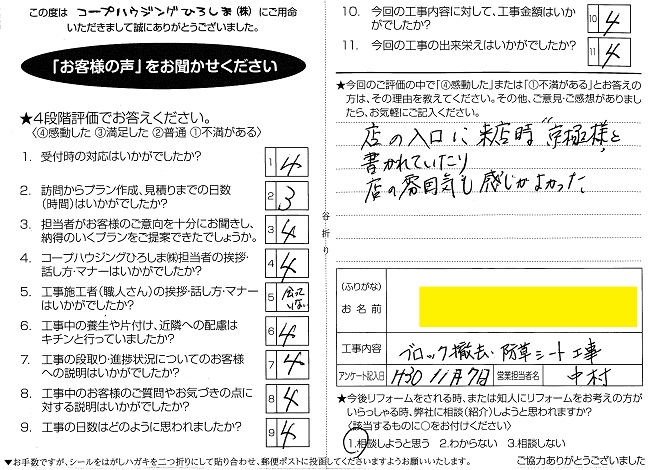 この度は コープハウジングひろしま(株) にご用命
いただきまして誠にありがとうございました。
「お客様の声」をお聞かせください
★4段階評価でお答えください。
〈④感動した ③満足した ②普通 ①不満がある〉
1. 受付時の対応はいかがでしたか?
1 4
2. 訪問からプラン作成、見積りまでの日数
(時間)はいかがでしたか?
2 3
3. 担当者がお客様のご意向を十分にお聞きし、
納得のいくプランをご提案できたでしょうか。
3 4
4. コープハウジングひろしま㈱担当者の挨拶・
話し方・マナーはいかがでしたか?
4 4
5. 工事施工者(職人さん)の挨拶・話し方・マナー
はいかがでしたか?
5 会って
いない
6. 工事中の養生や片付け、近隣への配慮は
キチンと行っていましたか?
6 4
7. 工事の段取り・進捗状況についてのお客様
への説明はいかがでしたか?
7 4
8. 工事中のお客様のご質問やお気づきの点に
対する説明はいかがでしたか?
8 4
9. 工事の日数はどのように思われましたか?
9 4
▼お手数ですが、シールをはがしハガキを二つ折りにして貼り合わせ、郵便ポストに投函してくださいますようお願いいたします。
谷折り
10. 今回の工事内容に対して、工事金額はいか
がでしたか?
10 4
11. 今回の工事の出来栄えはいかがでしたか?
11 4
★今回のご評価の中で「④感動した」または「①不満がある」とお答えの
方は、その理由を教えてください。その他、ご意見・ご感想がありまし
たら、お気軽にご記入ください。
店の入口に来店時"京極様"と
書かれていたり
店の雰囲気も感じがよかった
(ふりがな)
お名前
工事内容 ブロック撤去、防草シート工事
アンケート記入日 H30 11月7日 営業担当者名 中村
★今後リフォームをされる時、または知人にリフォームをお考えの方が
いらっしゃる時、弊社に相談(紹介)しようと思われますか?
〈該当するものに○をお付けください〉
1.相談しようと思う 2.わからない 3.相談しない
ご協力ありがとうございました